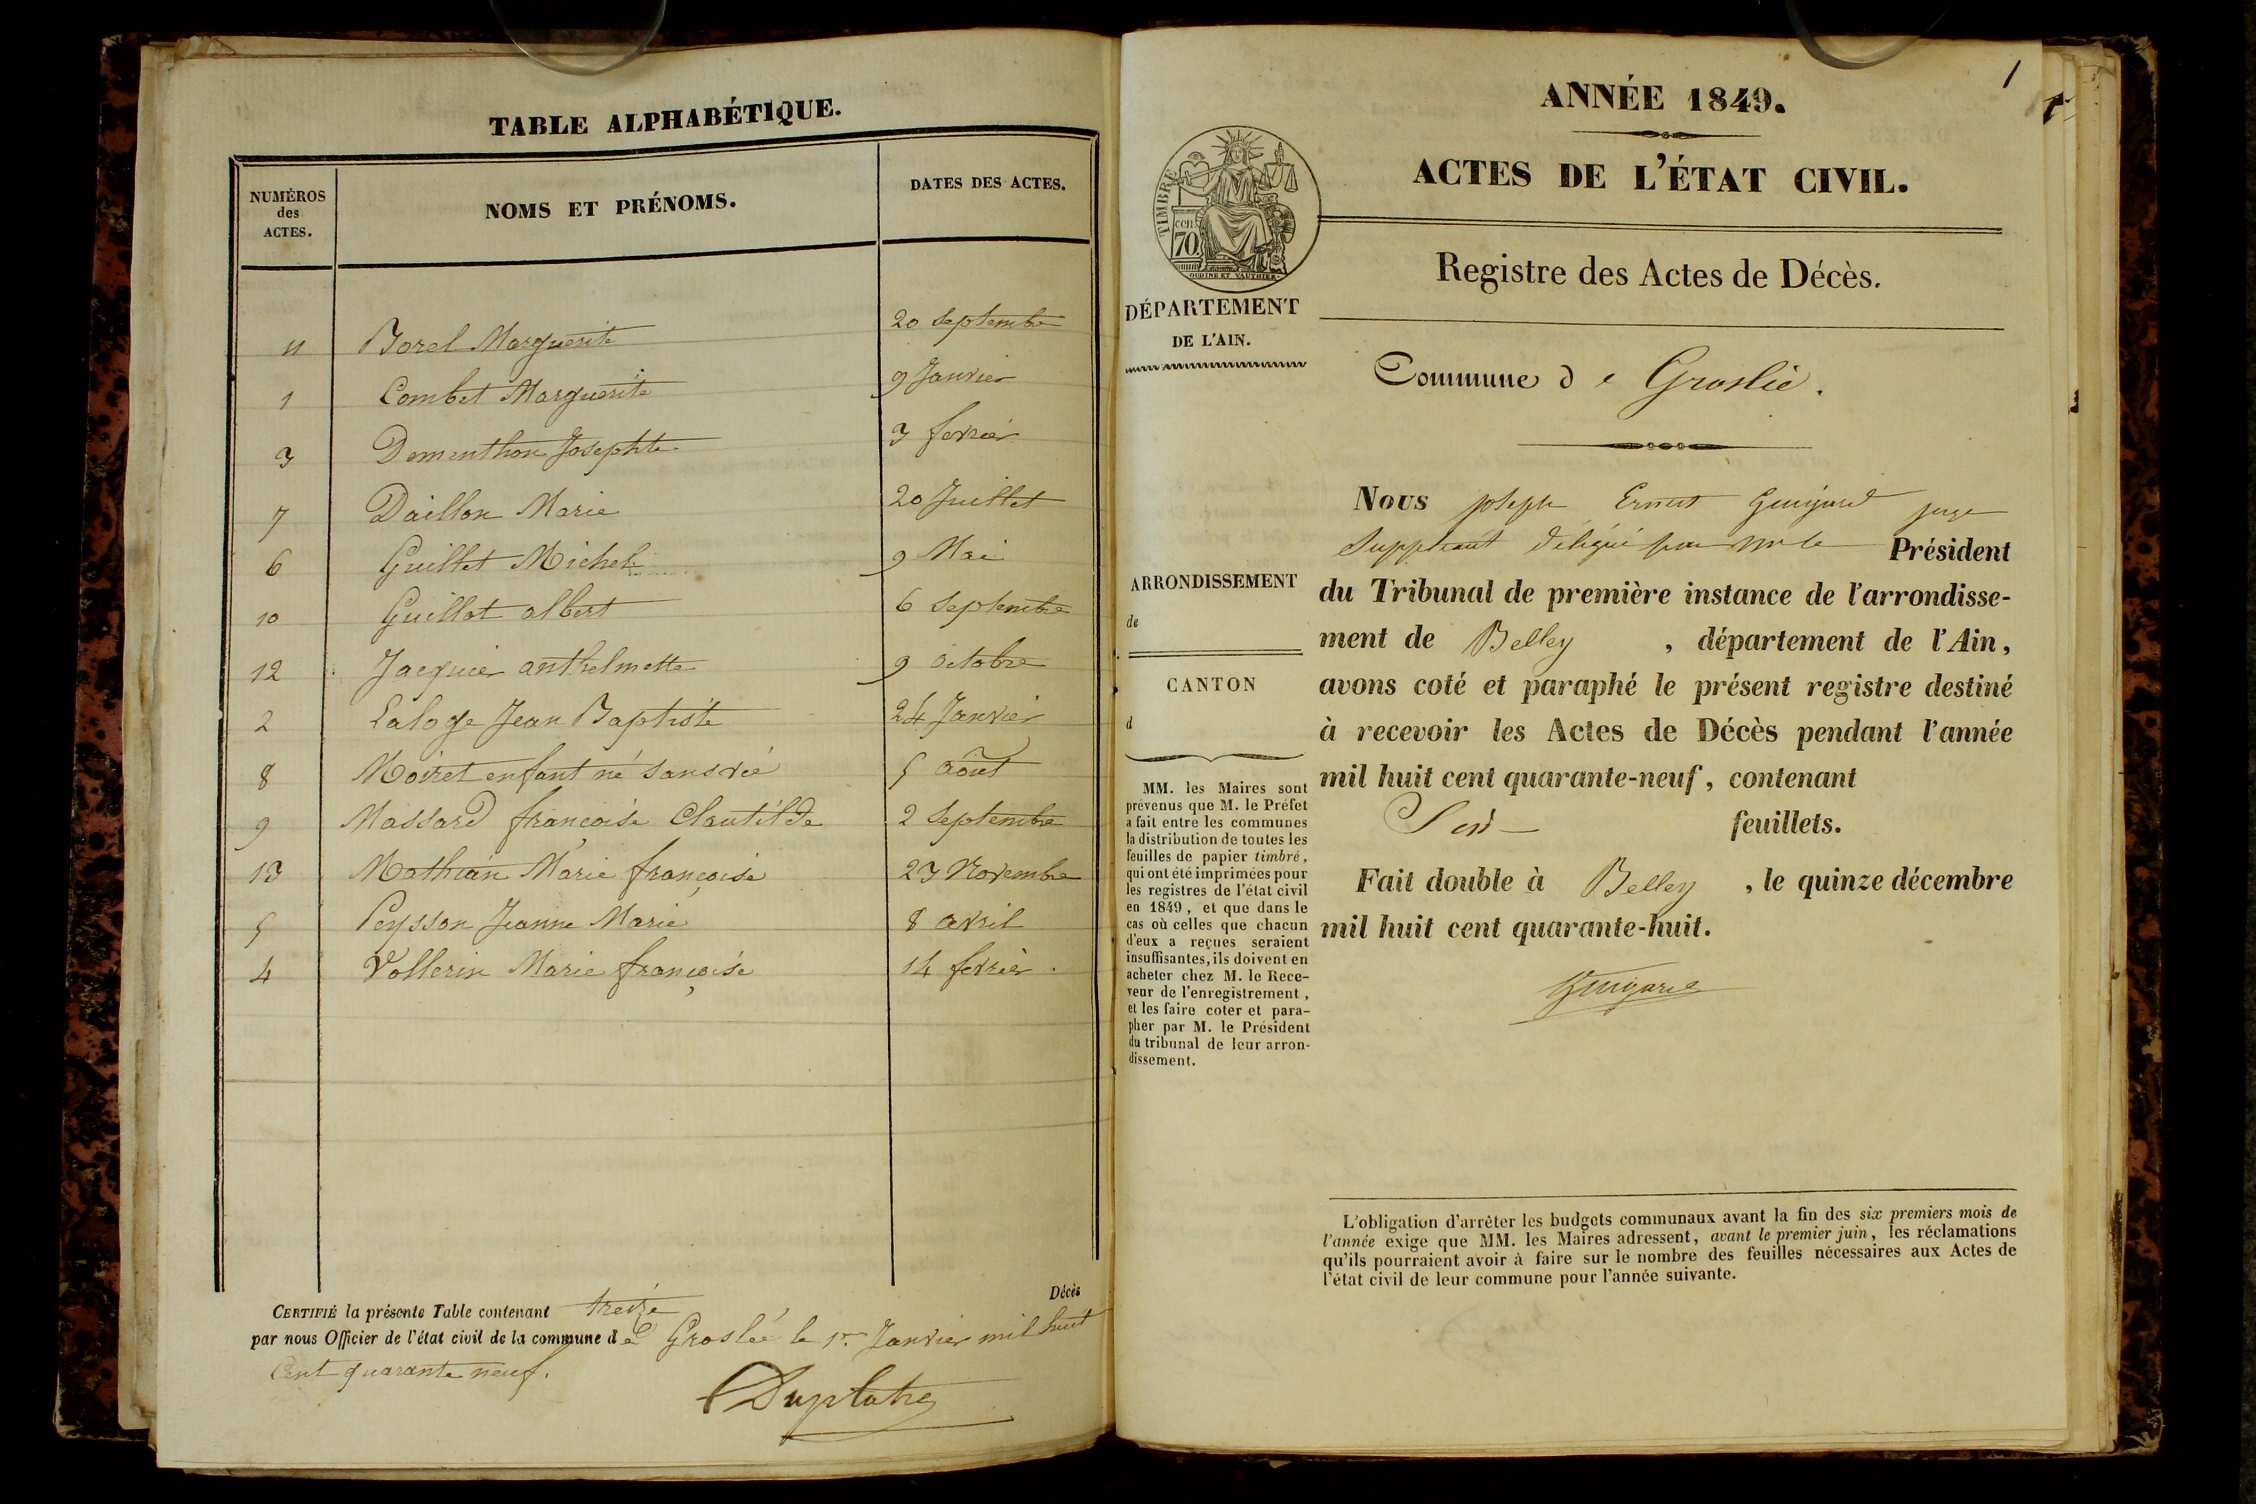 TABLE ALPHABÉTIQUE.
NUMÉROS des ACTES. NOMS ET PRÉNOMS. DATES DES ACTES.
11 Borel Marguerite 20 Septembre
1 Combet Marguerite 9 Janvier
3 Dementhon Josephte 3 fevrier
7 Daillon Marie 20 Juillet
6 Guillet Michel 9 Mai
10 Guillot albert 6 Septembre
12 Jacquier anthelmette 9 octobre
2 Laloge Jean Baptiste 24 Janvier
8 Moiret enfant né sans vie 5 août
9 Massard françoise Clautilde 2 Septembre
13 Mathian Marie françoise 23 Novembre
5 Peysson Jeanne Marie 8 avril
4 Vollerin Marie françoise 14 fevrier
CERTIFIÉ la présente Table contenant treize Décès
par nous Officier de l'état civil de la commune de Groslée le 1er Janvier mil huit
Cent quarante neuf.
1
ANNÉE 1849.
ACTES DE L'ÉTAT CIVIL.
TIMBRE
cen.
70
OUDINÉ ET VAUTHIER
Registre des Actes de Décès.
DÉPARTEMENT
DE L'AIN.
Commune de Groslée.
Nous Joseph Ernest Guigard juge
Suppléant délégué par Mr le Président
du Tribunal de première instance de l'arrondisse-
ment de Belley, département de l'Ain,
avons coté et paraphé le présent registre destiné
à recevoir les Actes de Décès pendant l'année
mil huit cent quarante-neuf, contenant
Six feuillets.
Fait double à Belley, le quinze décembre
mil huit cent quarante-huit.
Guigard
ARRONDISSEMENT
de
CANTON
d
MM. les Maires sont
prévenus que M. le Préfet
a fait entre les communes
la distribution de toutes les
feuilles de papier timbré,
qui ont été imprimées pour
les registres de l'état civil
en 1849, et que dans le
cas où celles que chacun
d'eux a reçues seraient
insuffisantes, ils doivent en
acheter chez M. le Rece-
veur de l'enregistrement,
et les faire coter et para-
pher par M. le Président
du tribunal de leur arron-
dissement.
L'obligation d'arrêter les budgets communaux avant la fin des six premiers mois de
l'année exige que MM. les Maires adressent, avant le premier juin, les réclamations
qu'ils pourraient avoir à faire sur le nombre des feuilles nécessaires aux Actes de
l'état civil de leur commune pour l'année suivante.